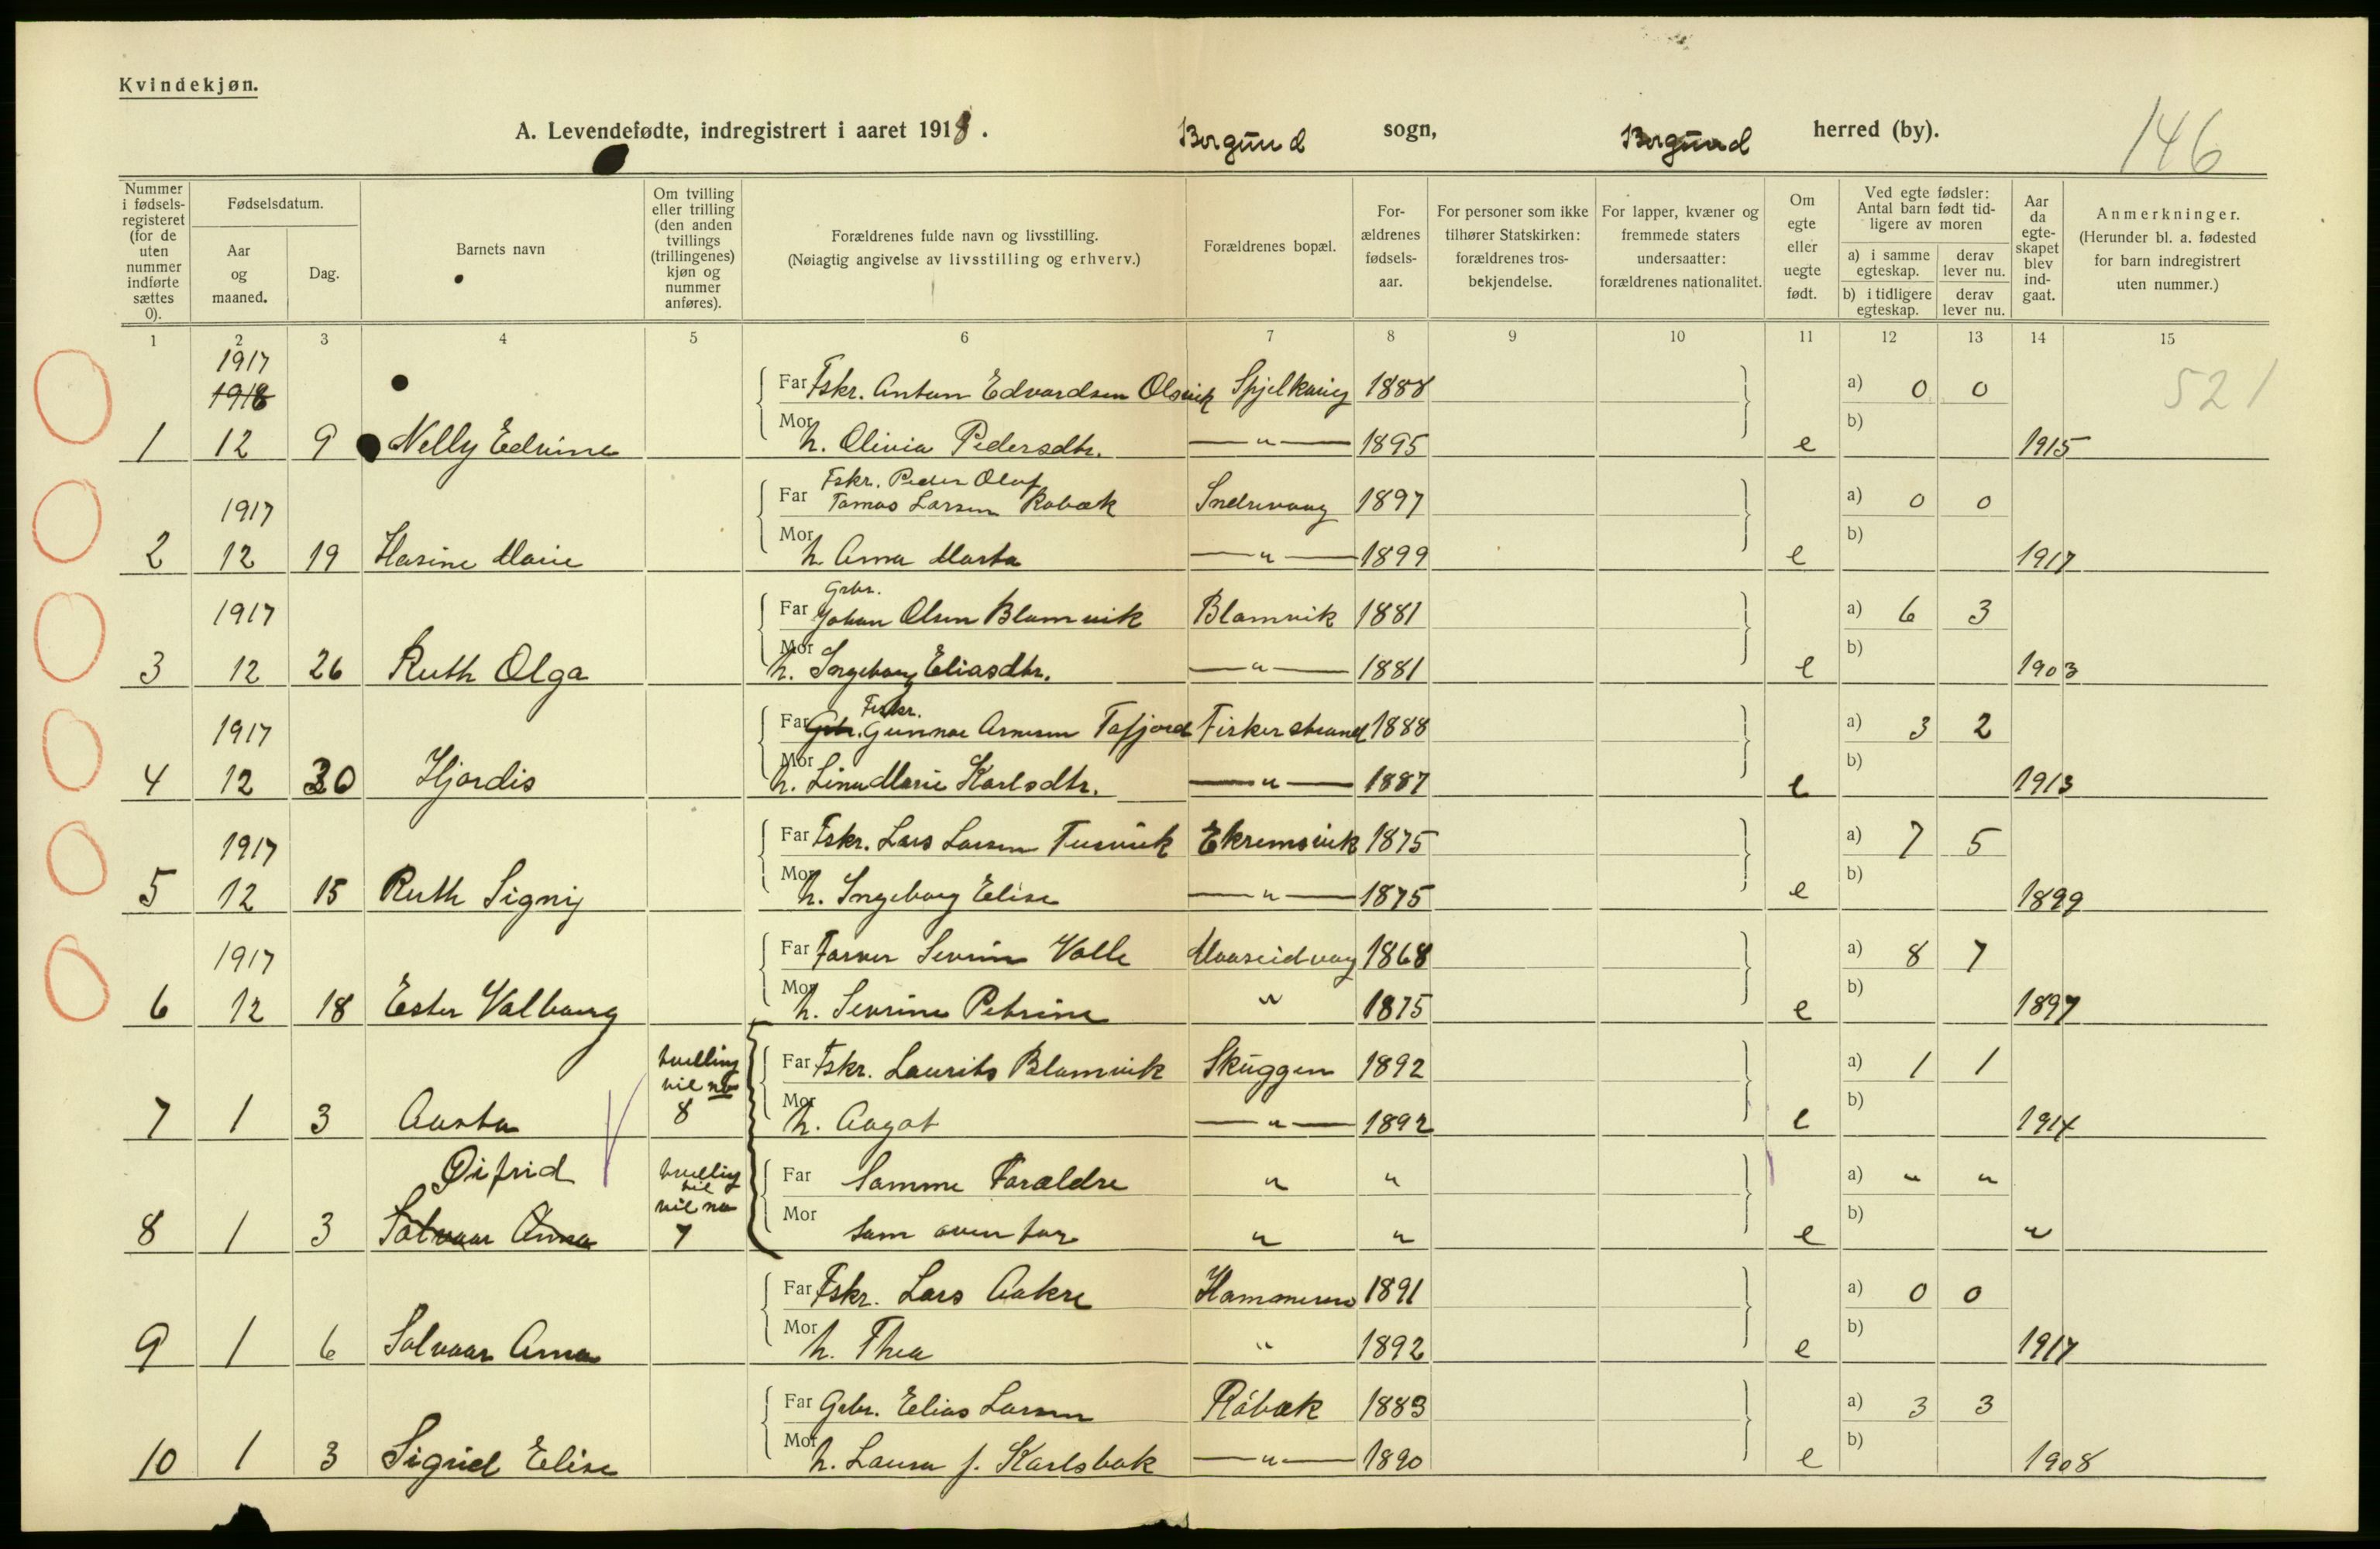 Kvindekjøn.
A. Levendefødte, indregistrert i aaret 1918. Borgund sogn, Borgund herred (by). 146
Nummer i fødsels-registeret (for de uten nummer indførte sættes 0).
Fødselsdatum.
Aar og maaned.
Dag.
Barnets navn
Om tvilling eller trilling (den anden tvillings (trillingenes) kjøn og nummer anføres).
Forældrenes fulde navn og livsstilling.
(Nøiagtig angivelse av livsstilling og erhverv.)
Forældrenes bopæl.
For-ældrenes fødsels-aar.
For personer som ikke tilhører Statskirken: forældrenes tros-bekjendelse.
For lapper, kvæner og fremmede staters undersaatter: forældrenes nationalitet.
Om egte eller uegte født.
Ved egte fødsler: Antal barn født tid-ligere av moren
a) i samme egteskap. derav lever nu.
b) i tidligere egteskap. derav lever nu.
Aar da egte-skapet blev ind-gaat.
Anmerkninger.
(Herunder bl. a. fødested for barn indregistrert uten nummer.)
1 2 3 4 5 6 7 8 9 10 11 12 13 14 15
1917
1918 Far Fskr. Anton Edvardsen Olsvik Spjelkavig 1888 a) 0 0 521
1 12 9 Nelly Edvine Mor h. Olivia Pedersdtr. — " — 1895 e b) 1915
Fskr. Peder Olaf
1917 Far Tomas Larsen Robæk 1897 a) 0 0
2 12 19 Hasine Marie Mor h. Anna Marta — " — 1899 e b) 1917
Grbr.
1917 Far Johan Olsen Blomvik Blomvik 1881 a) 6 3
3 12 26 Ruth Olga Mor h. Ingeborg Eliasdtr. — " — 1881 e b) 1903
Fiskr.
1917 Far Grbr. Gunnar Arnesen Tafjord Fiskerstrand 1888 a) 3 2
4 12 30 Hjordis Mor h. Lina Marie Karlsdtr. — " — 1887 e b) 1913
1917 Far Fskr. Lars Larsen Tusvik Ekremsvik 1875 a) 7 5
5 12 15 Ruth Signy Mor h. Ingeborg Elise — " — 1875 e b) 1899
1917 Far Farver Sevrin Valle Maaseidvaag 1868 a) 8 7
6 12 18 Ester Valborg Mor h. Sevrine Petrine " 1875 e b) 1897
tvelling Far Fskr. Laurits Blomvik Skuggen 1892 a) 1 1
til no
7 1 3 Aasta 8 Mor h. Aagot — " — 1892 e b) 1914
Øifrid tvelling Far Samme Forældre " " a) " "
til
til no
8 1 3 Solvaar Anna 7 Mor som ovenfor " " e b) "
Far Fskr. Lars Aakre 1891 a) 0 0
9 1 6 Solvaar Anna Mor h. Thea " 1892 e b) 1917
Far Grbr. Elias Larsen Råbæk 1883 a) 3 3
10 1 3 Sigrid Elise Mor h. Laura f. Karlsbak — " — 1890 e b) 1908